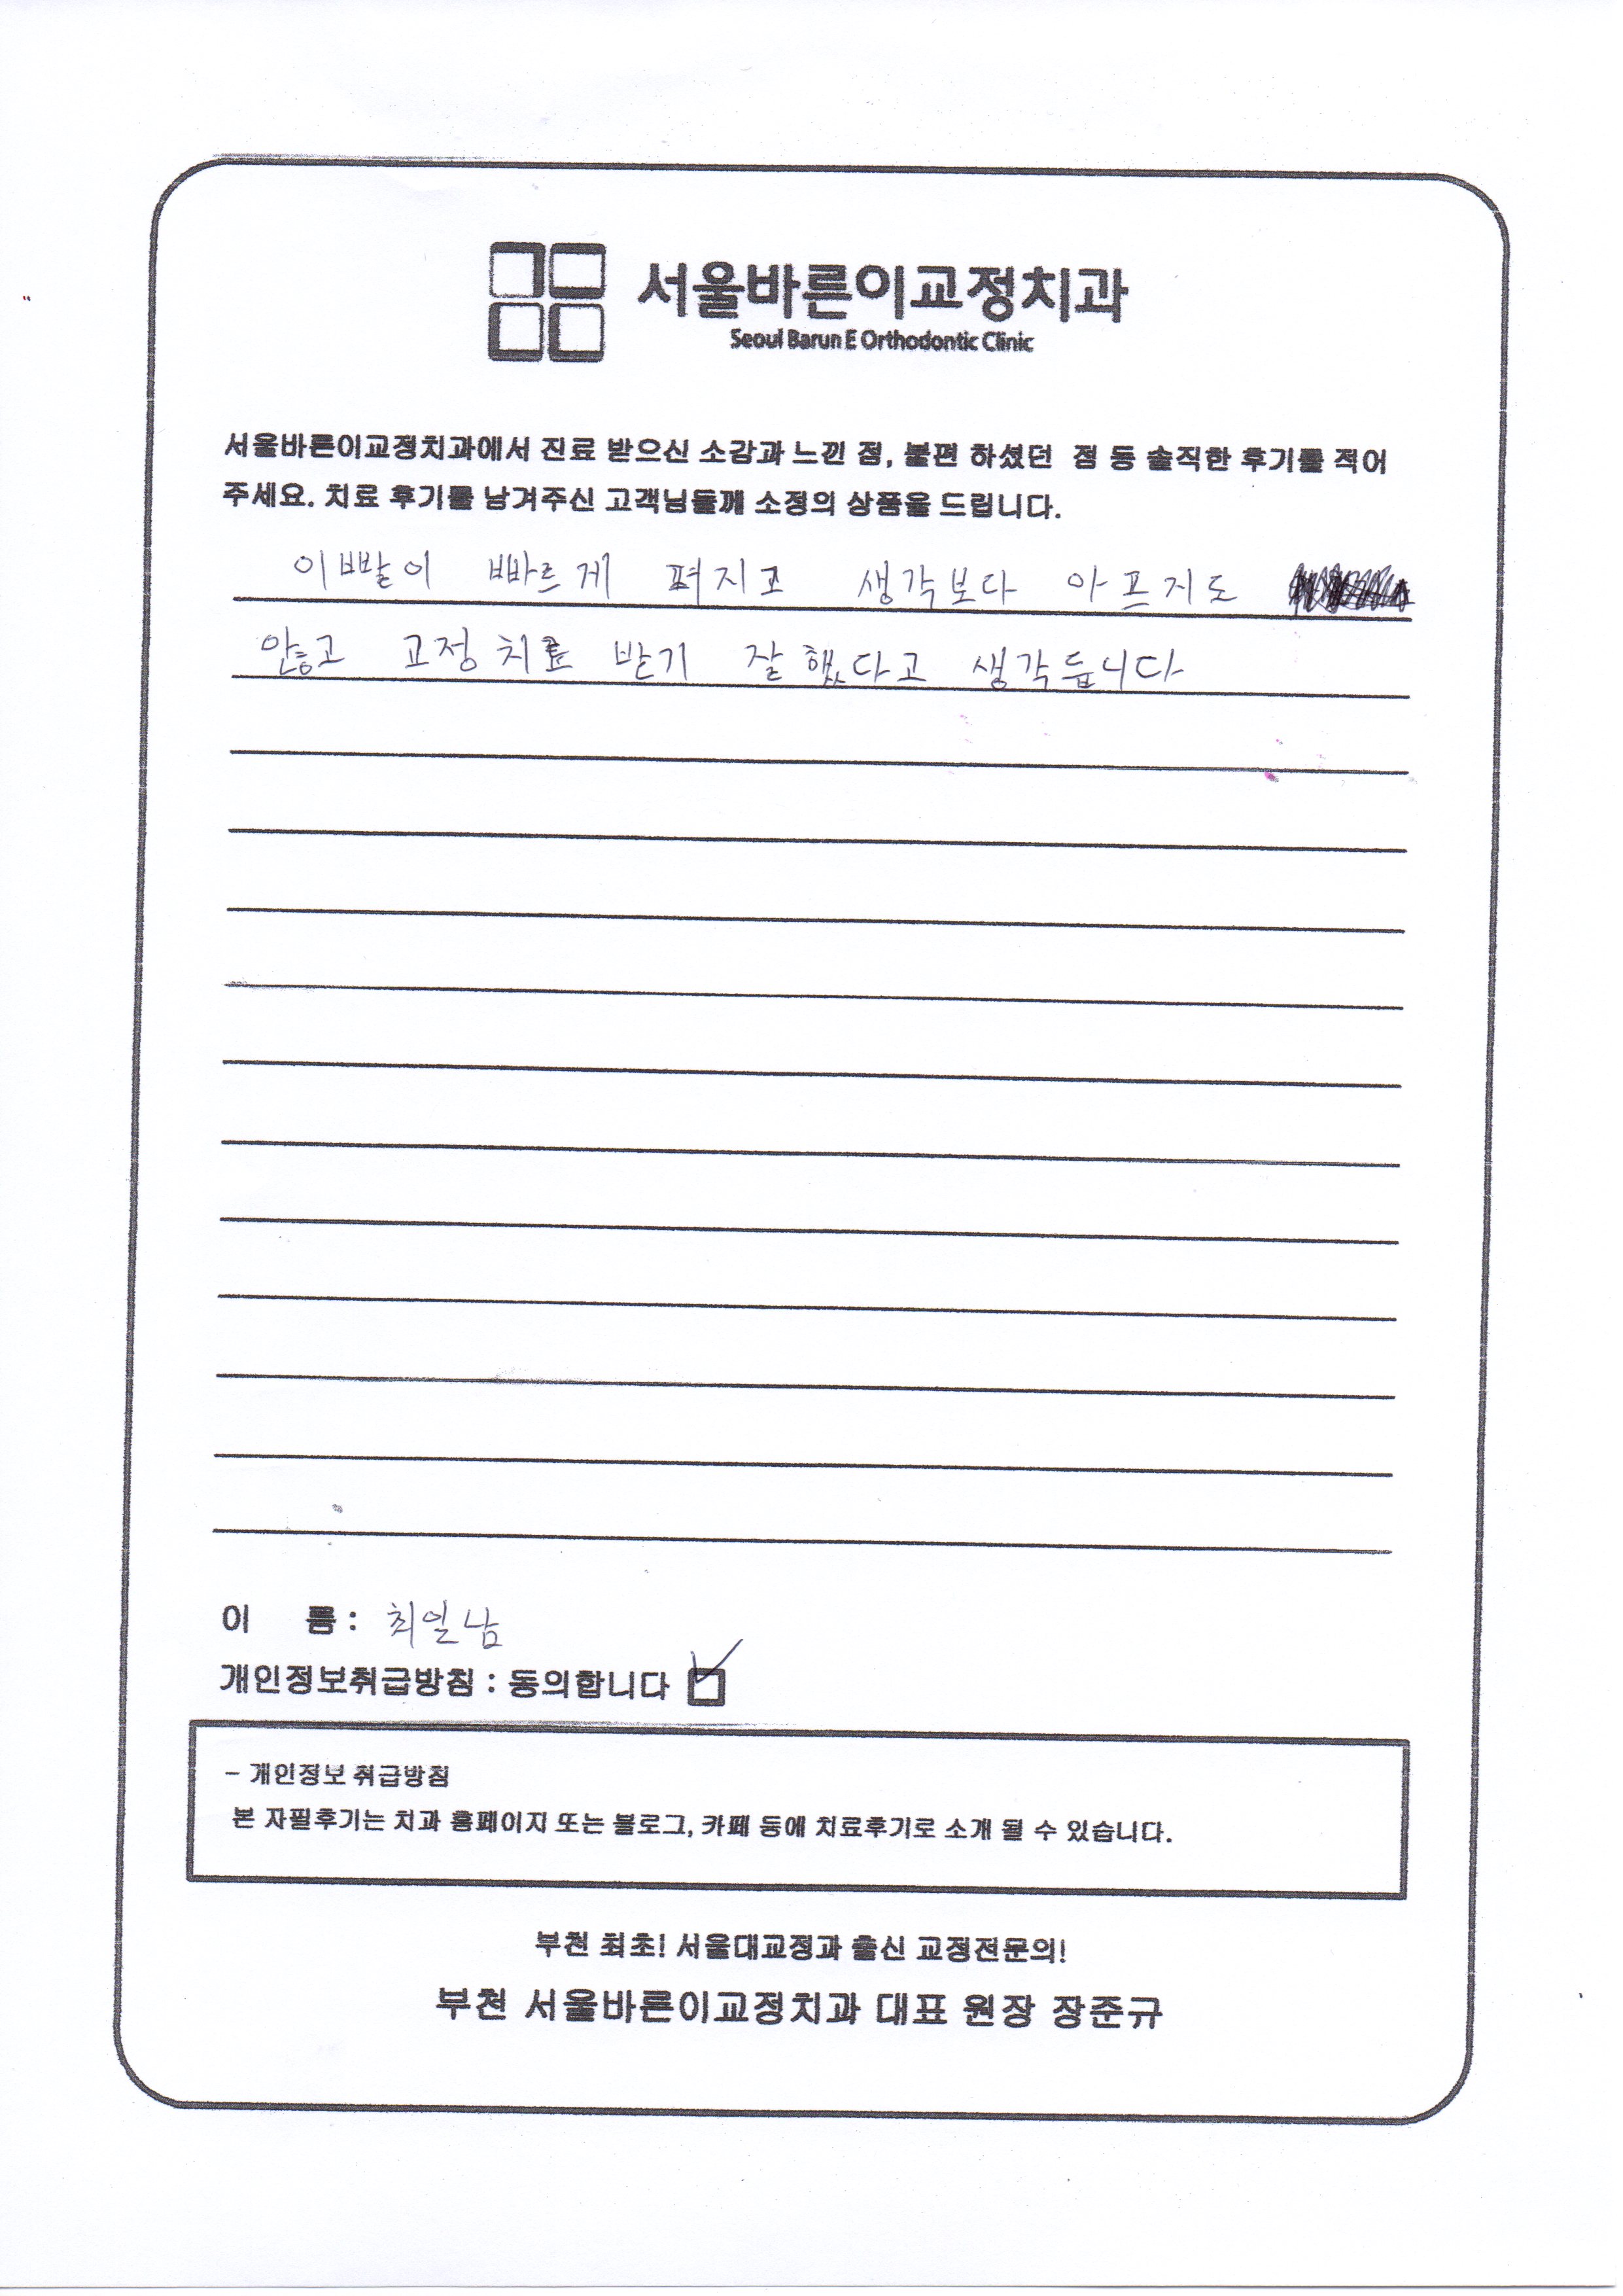 서울바른이교정치과
Seoul Barun E Orthodontic Clinic
서울바른이교정치과에서 진료 받으신 소감과 느낀 점, 불편 하셨던 점 등 솔직한 후기를 적어
주세요. 치료 후기를 남겨주신 고객님들께 소정의 상품을 드립니다.
이빨이 빠르게 펴지고 생각보다 아프지도
않고 교정치료 받기 잘했다고 생각듭니다
이 름 : 최일남
개인정보취급방침 : 동의합니다
- 개인정보 취급방침
본 자필후기는 치과 홈페이지 또는 블로그, 카페 등에 치료후기로 소개 될 수 있습니다.
부천 최초! 서울대교정과 출신 교정전문의!
부천 서울바른이교정치과 대표 원장 장준규